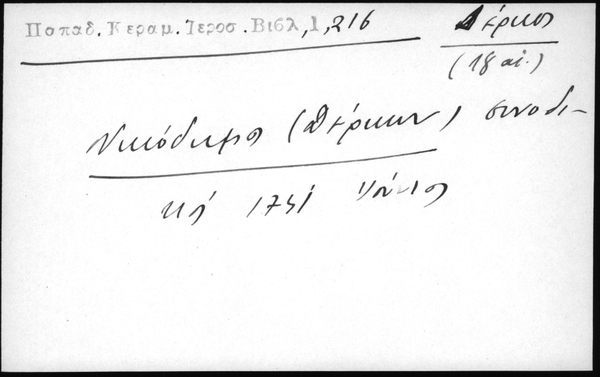 Παπαδ. Κεραμ. Ἱεροσ. Βιβλ, 1, 216
Δέρκοι
(18 αἰ.)
Νικόδημος (Δέρκων) συνοδι-
κός 1731 Ἰούνιος